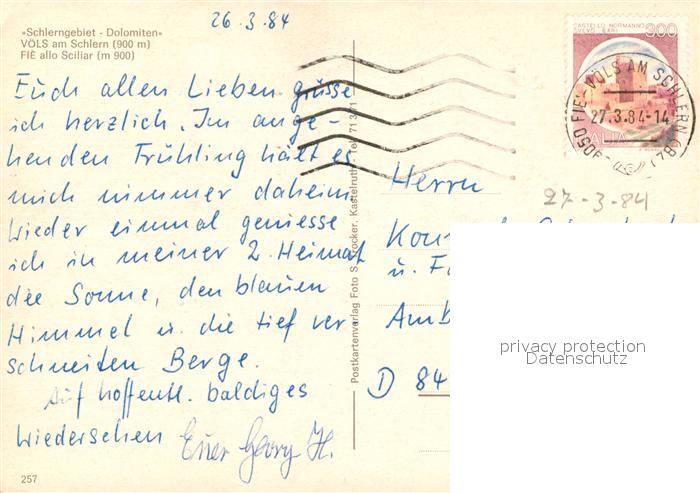 26.3.84
»Schlerngebiet - Dolomiten«
VÖLS am Schlern (900 m)
FIÈ allo Sciliar (m 900)
Euch allen Lieben grüsse
ich herzlich. Im ange-
henden Frühling hält es
mich nimmer daheim.
Wieder einmal geniesse
ich in meiner 2. Heimat
die Sonne, den blauen
Himmel u. die tief ver
schneiten Berge.
Auf hoffentl. baldiges
Wiedersehen Euer Georg H.
257
Postkartenverlag Foto Kastelruth - Tel. 71
CASTELLO NORMANNO
SVEVO - BARI
300
ITALIA
39050 FIE'-VÖLS AM SCHLERN (BZ)
27.3.84-14
27-3-84
Herrn
u.
Amb
D 84
privacy protection
Datenschutz